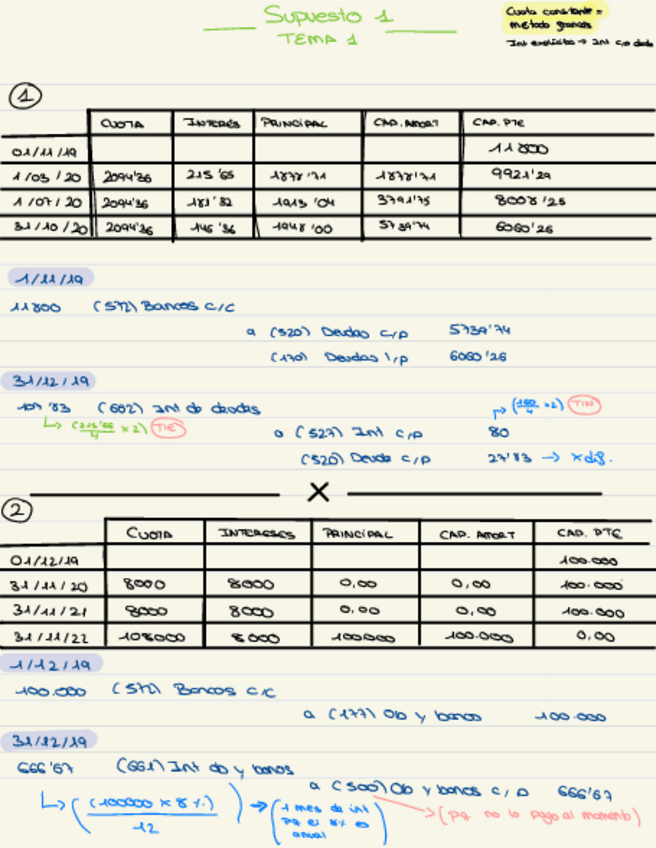 Supuesto 1
TEMA 1
Cuota constante =
método francés
Int explícito → Int c/p deuda
1
CUOTA INTERÉS PRINCIPAL CAP. AMORT CAP. PTE
01/11/19 11800
1/03/20 2094'36 215'65 1878'71 1878'71 9921'29
1/07/20 2094'36 181'32 1913'04 3791'75 8008'25
31/10/20 2094'36 146'36 1948'00 5739'74 6060'26
1/11/19
11800 (572) Bancos c/c
a (520) Deudas c/p 5739'74
(170) Deudas l/p 6060'26
31/12/19
107'83 (662) Int de deudas
↳ (215'65/4 x 2) TIE
(160/4 x 2) TIN
a (527) Int c/p 80
(520) Deuda c/p 27'83 → x dif.
X
2
CUOTA INTERESES PRINCIPAL CAP. AMORT CAP. PTE
01/12/19 100.000
31/11/20 8000 8000 0,00 0,00 100.000
31/11/21 8000 8000 0,00 0,00 100.000
31/11/22 108000 8000 100000 100.000 0,00
1/12/19
100.000 (572) Bancos c/c
a (177) Ob y bonos 100.000
31/12/19
666'67 (661) Int ob y bonos
a (500) Ob y bonos c/p 666'67
↳ ((100000 x 8%)/12) → (1 mes de int pq el 8% es anual)
→ (pq no lo pago al momento)